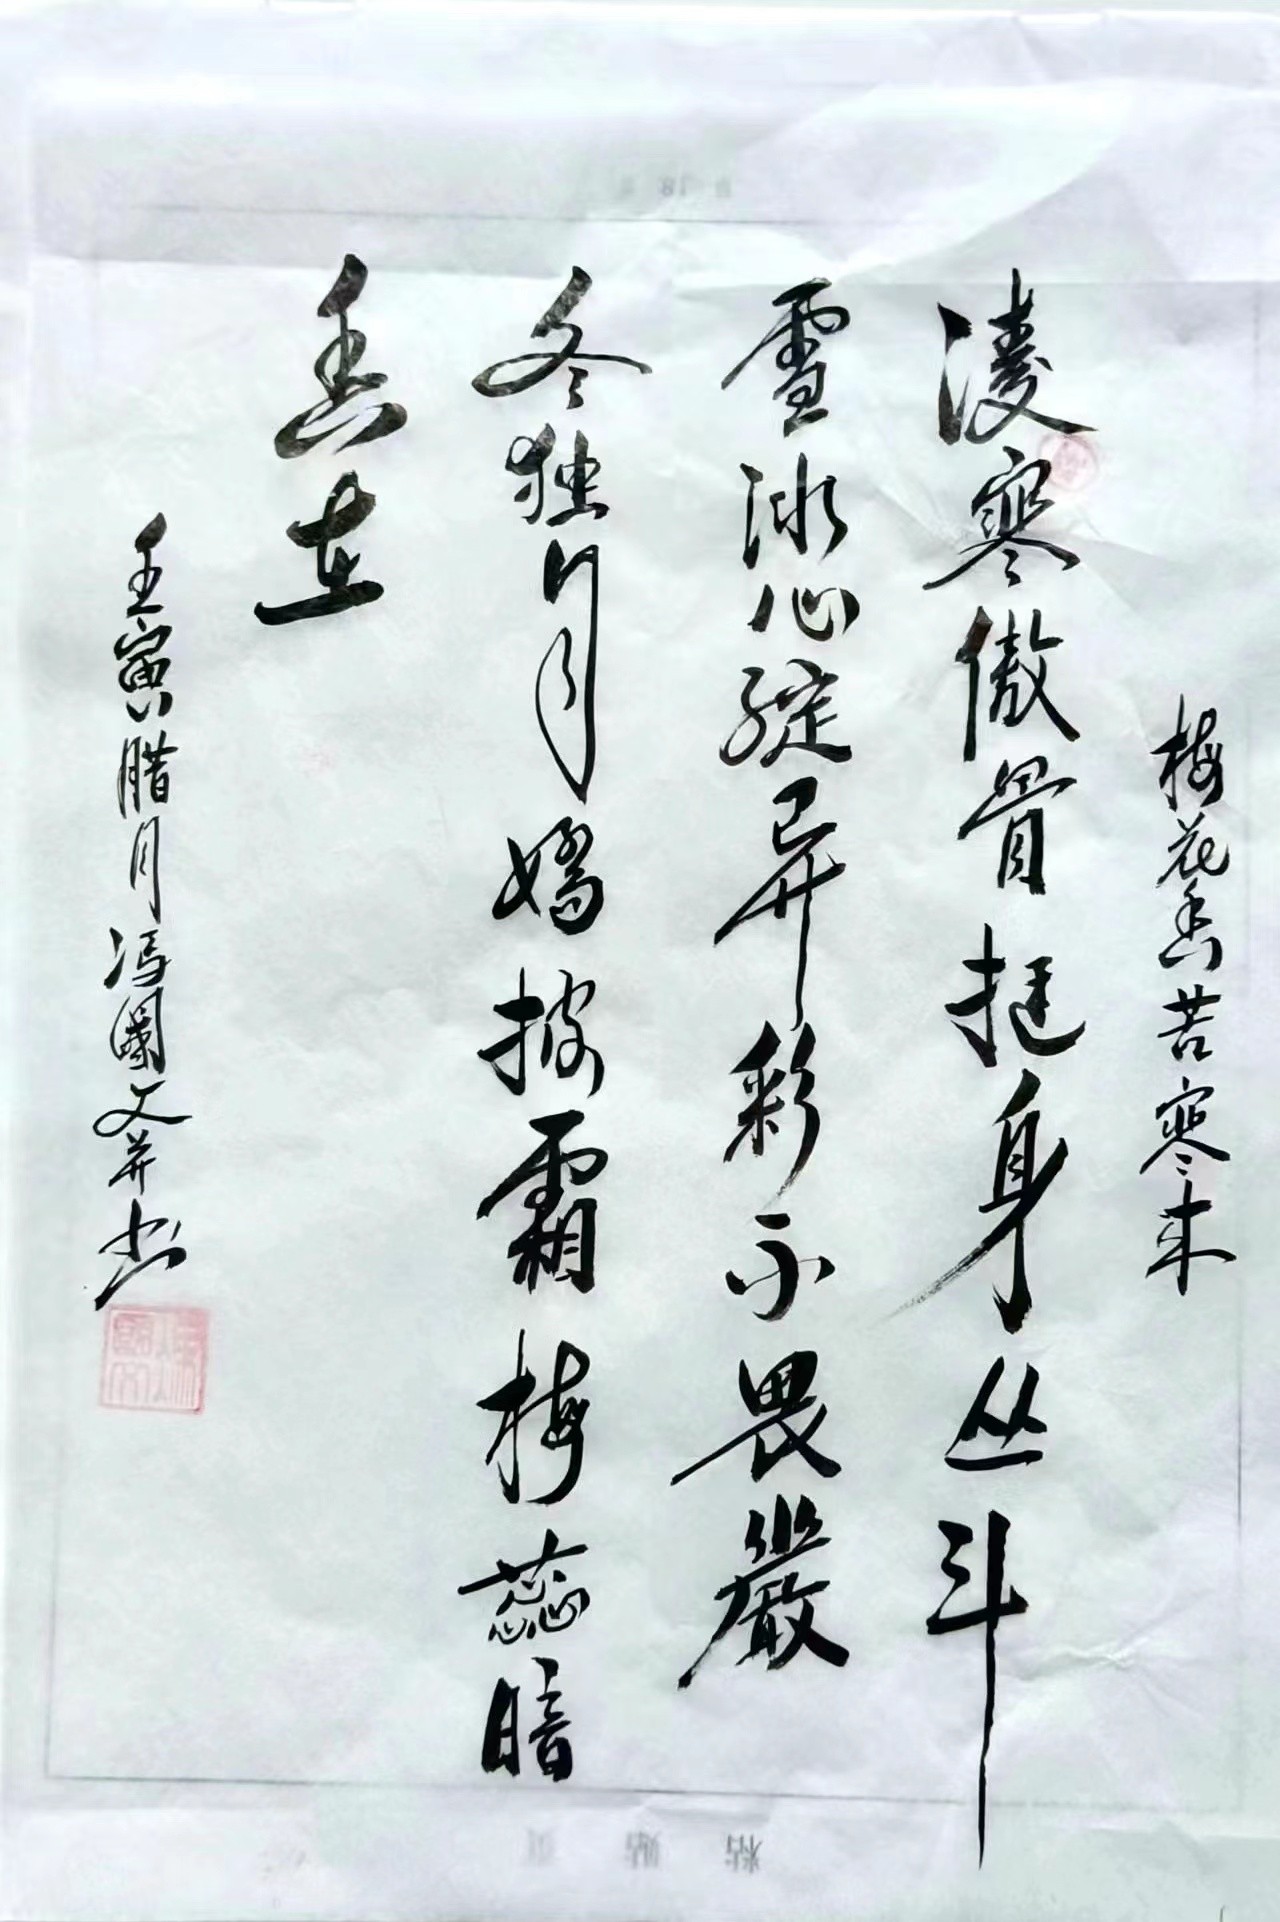 梅花香苦寒来
凌寒傲骨挺身丛斗
雪冰心绽异彩不畏嚴
冬独自嬌披霜梅蕊暗
香在
壬寅腊月冯國文并书
粘贴页